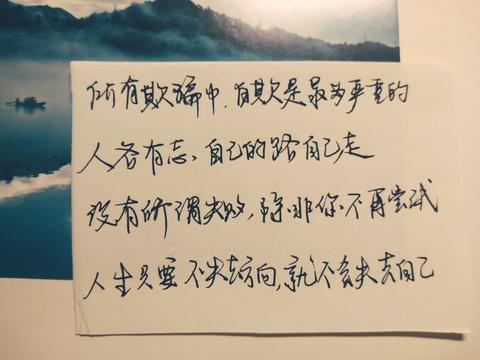 所有欺骗中,自欺是最为严重的
人各有志、自己的路自己走
没有所谓失败,除非你不再尝试
人生只要不失去方向,就不会失去自己